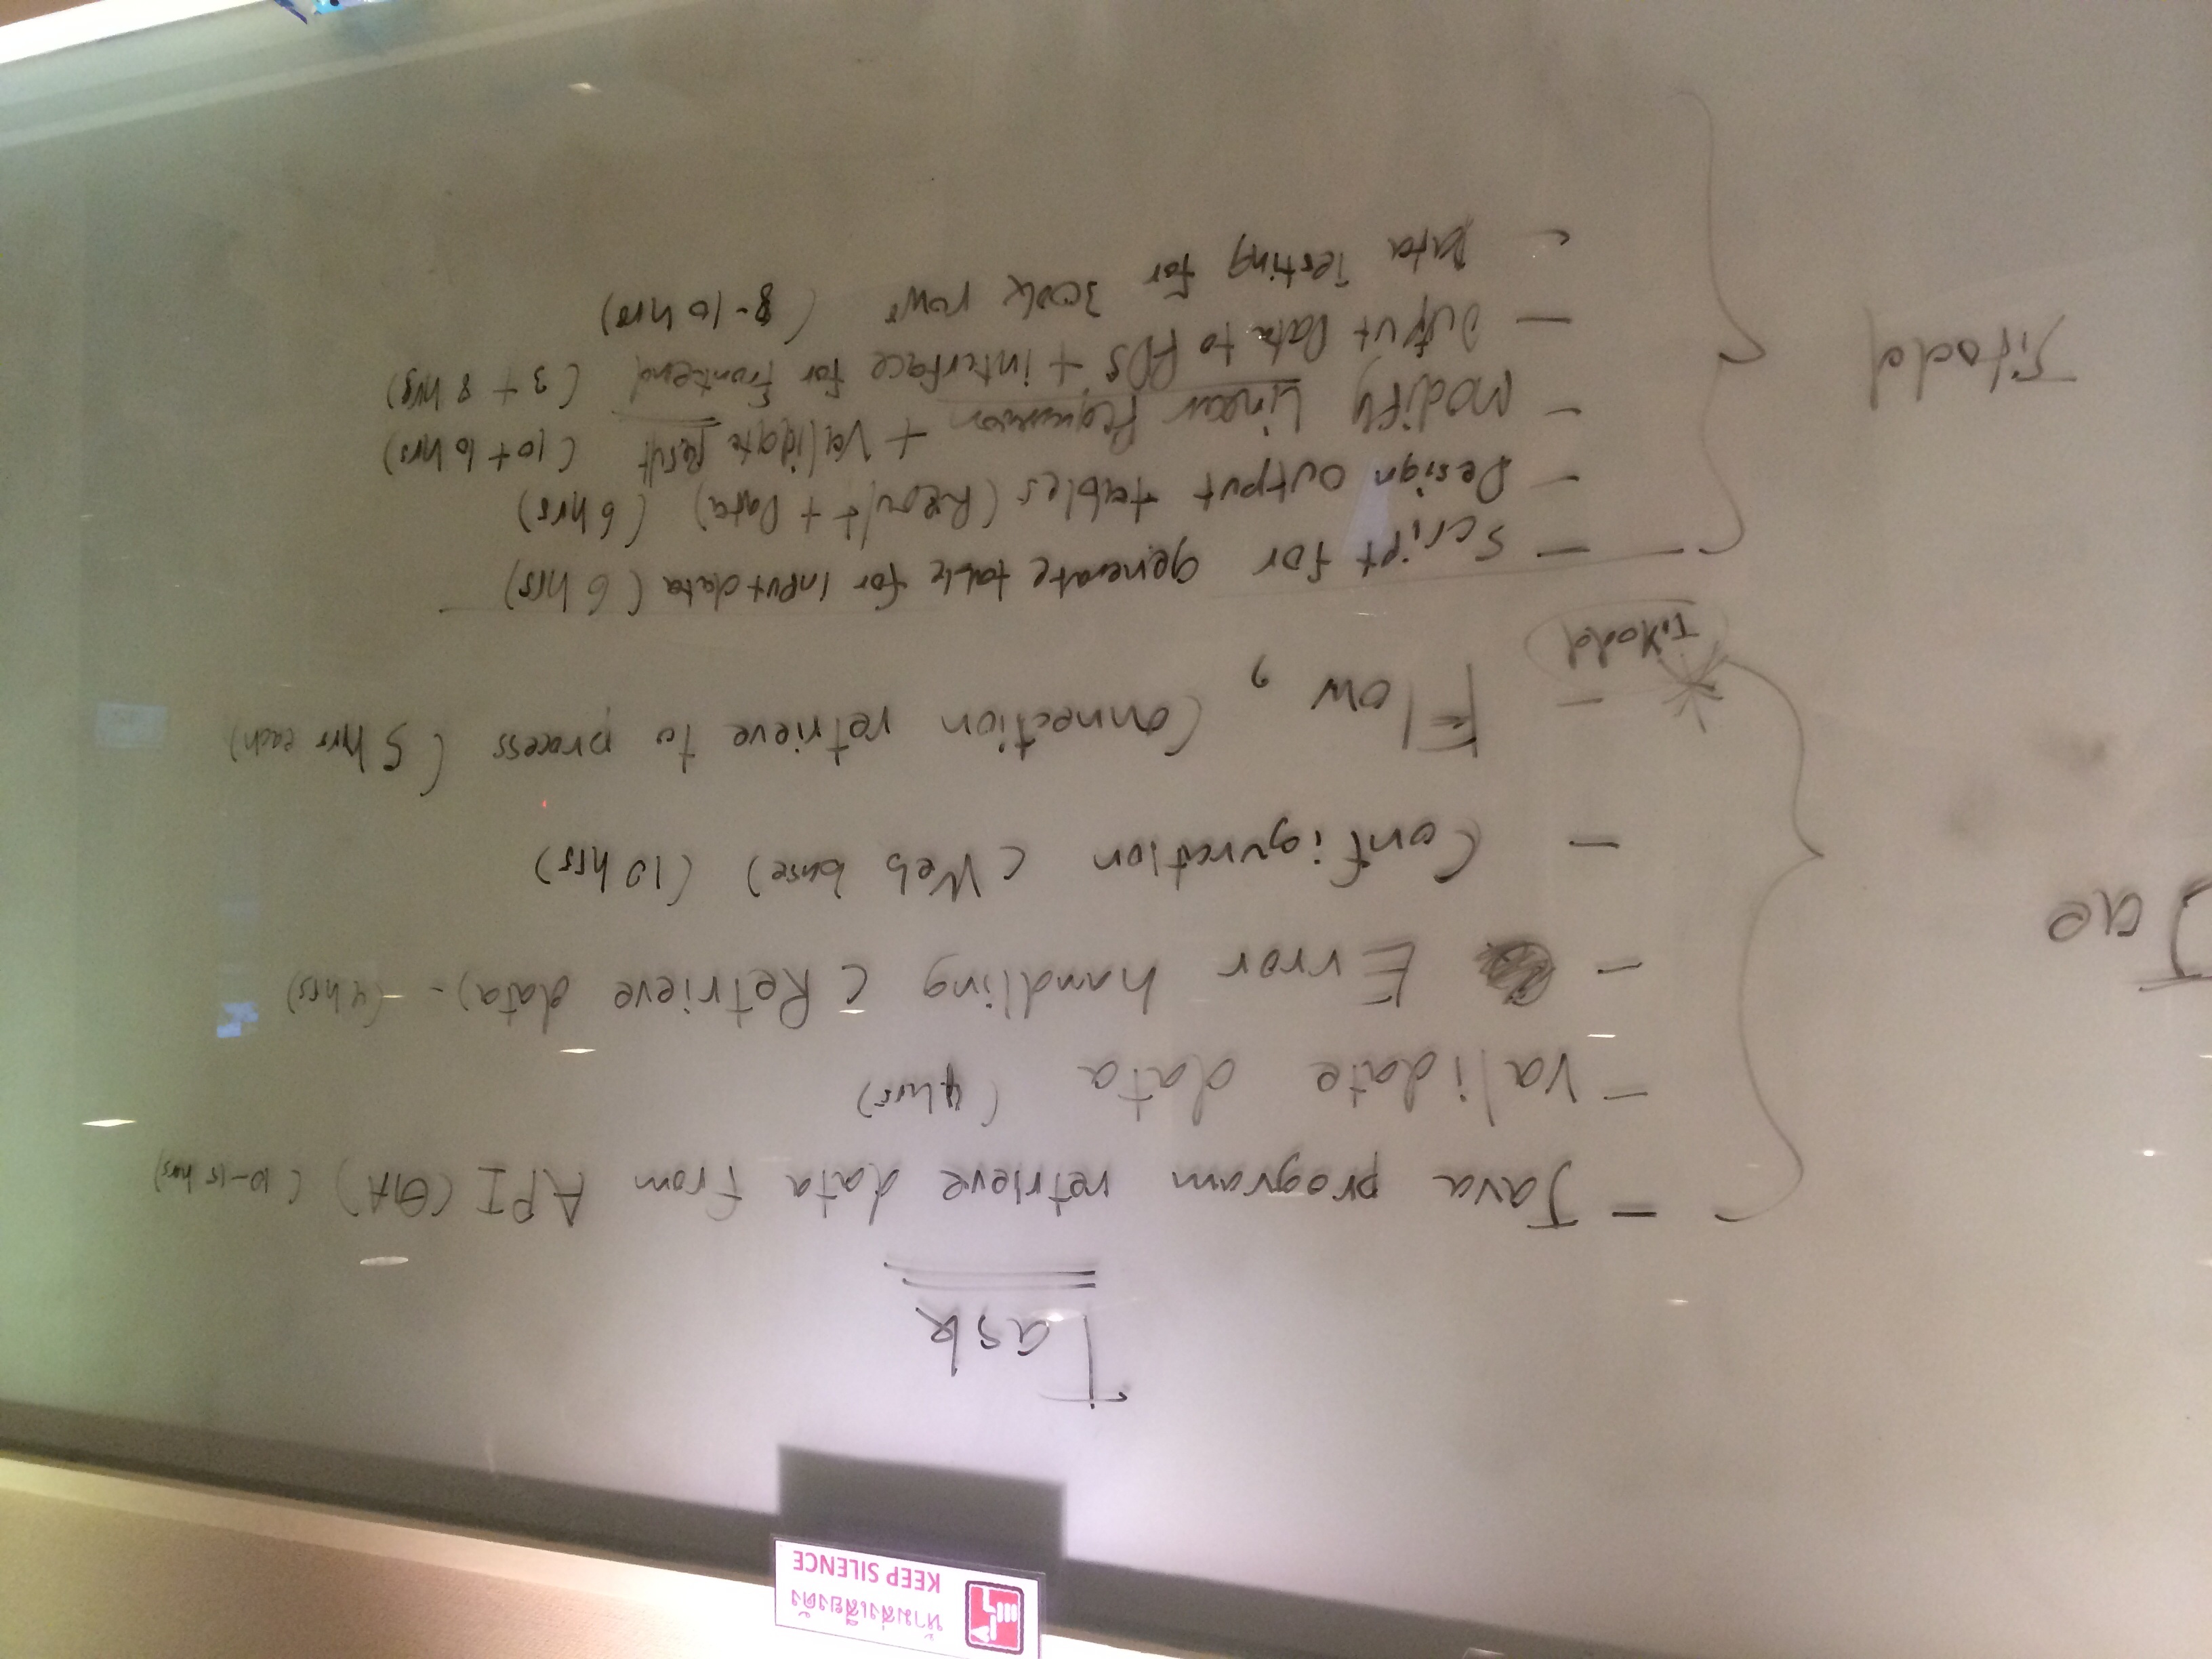 ห้ามส่งเสียงดัง
KEEP SILENCE
Task
Jae
- Java program retrieve data from API (GA) (10-15 hrs)
- Validate data (4 hrs)
- Error handling (Retrieve data). - (4 hrs)
- Configuration (Web base) (10 hrs)
- Flow, Connection retrieve to process (5 hrs each)
Jitodd
Jitodd
- Script for generate table for input data (6 hrs)
- Design output tables (Result + Data) (6 hrs)
- Modify Linear Regression + Validate Result (10 + 10 hrs)
- Output Data to RDS + interface for Frontend (3 + 8 hrs)
- Data Testing for 300k rows (8-10 hrs)